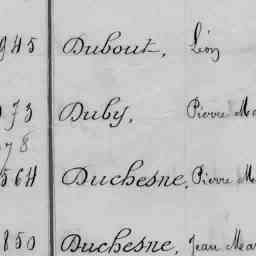 945 Dubout, Léon
73 Duby, Pierre
78
564 Duchesne, Pierre
850 Duchesne, Jean